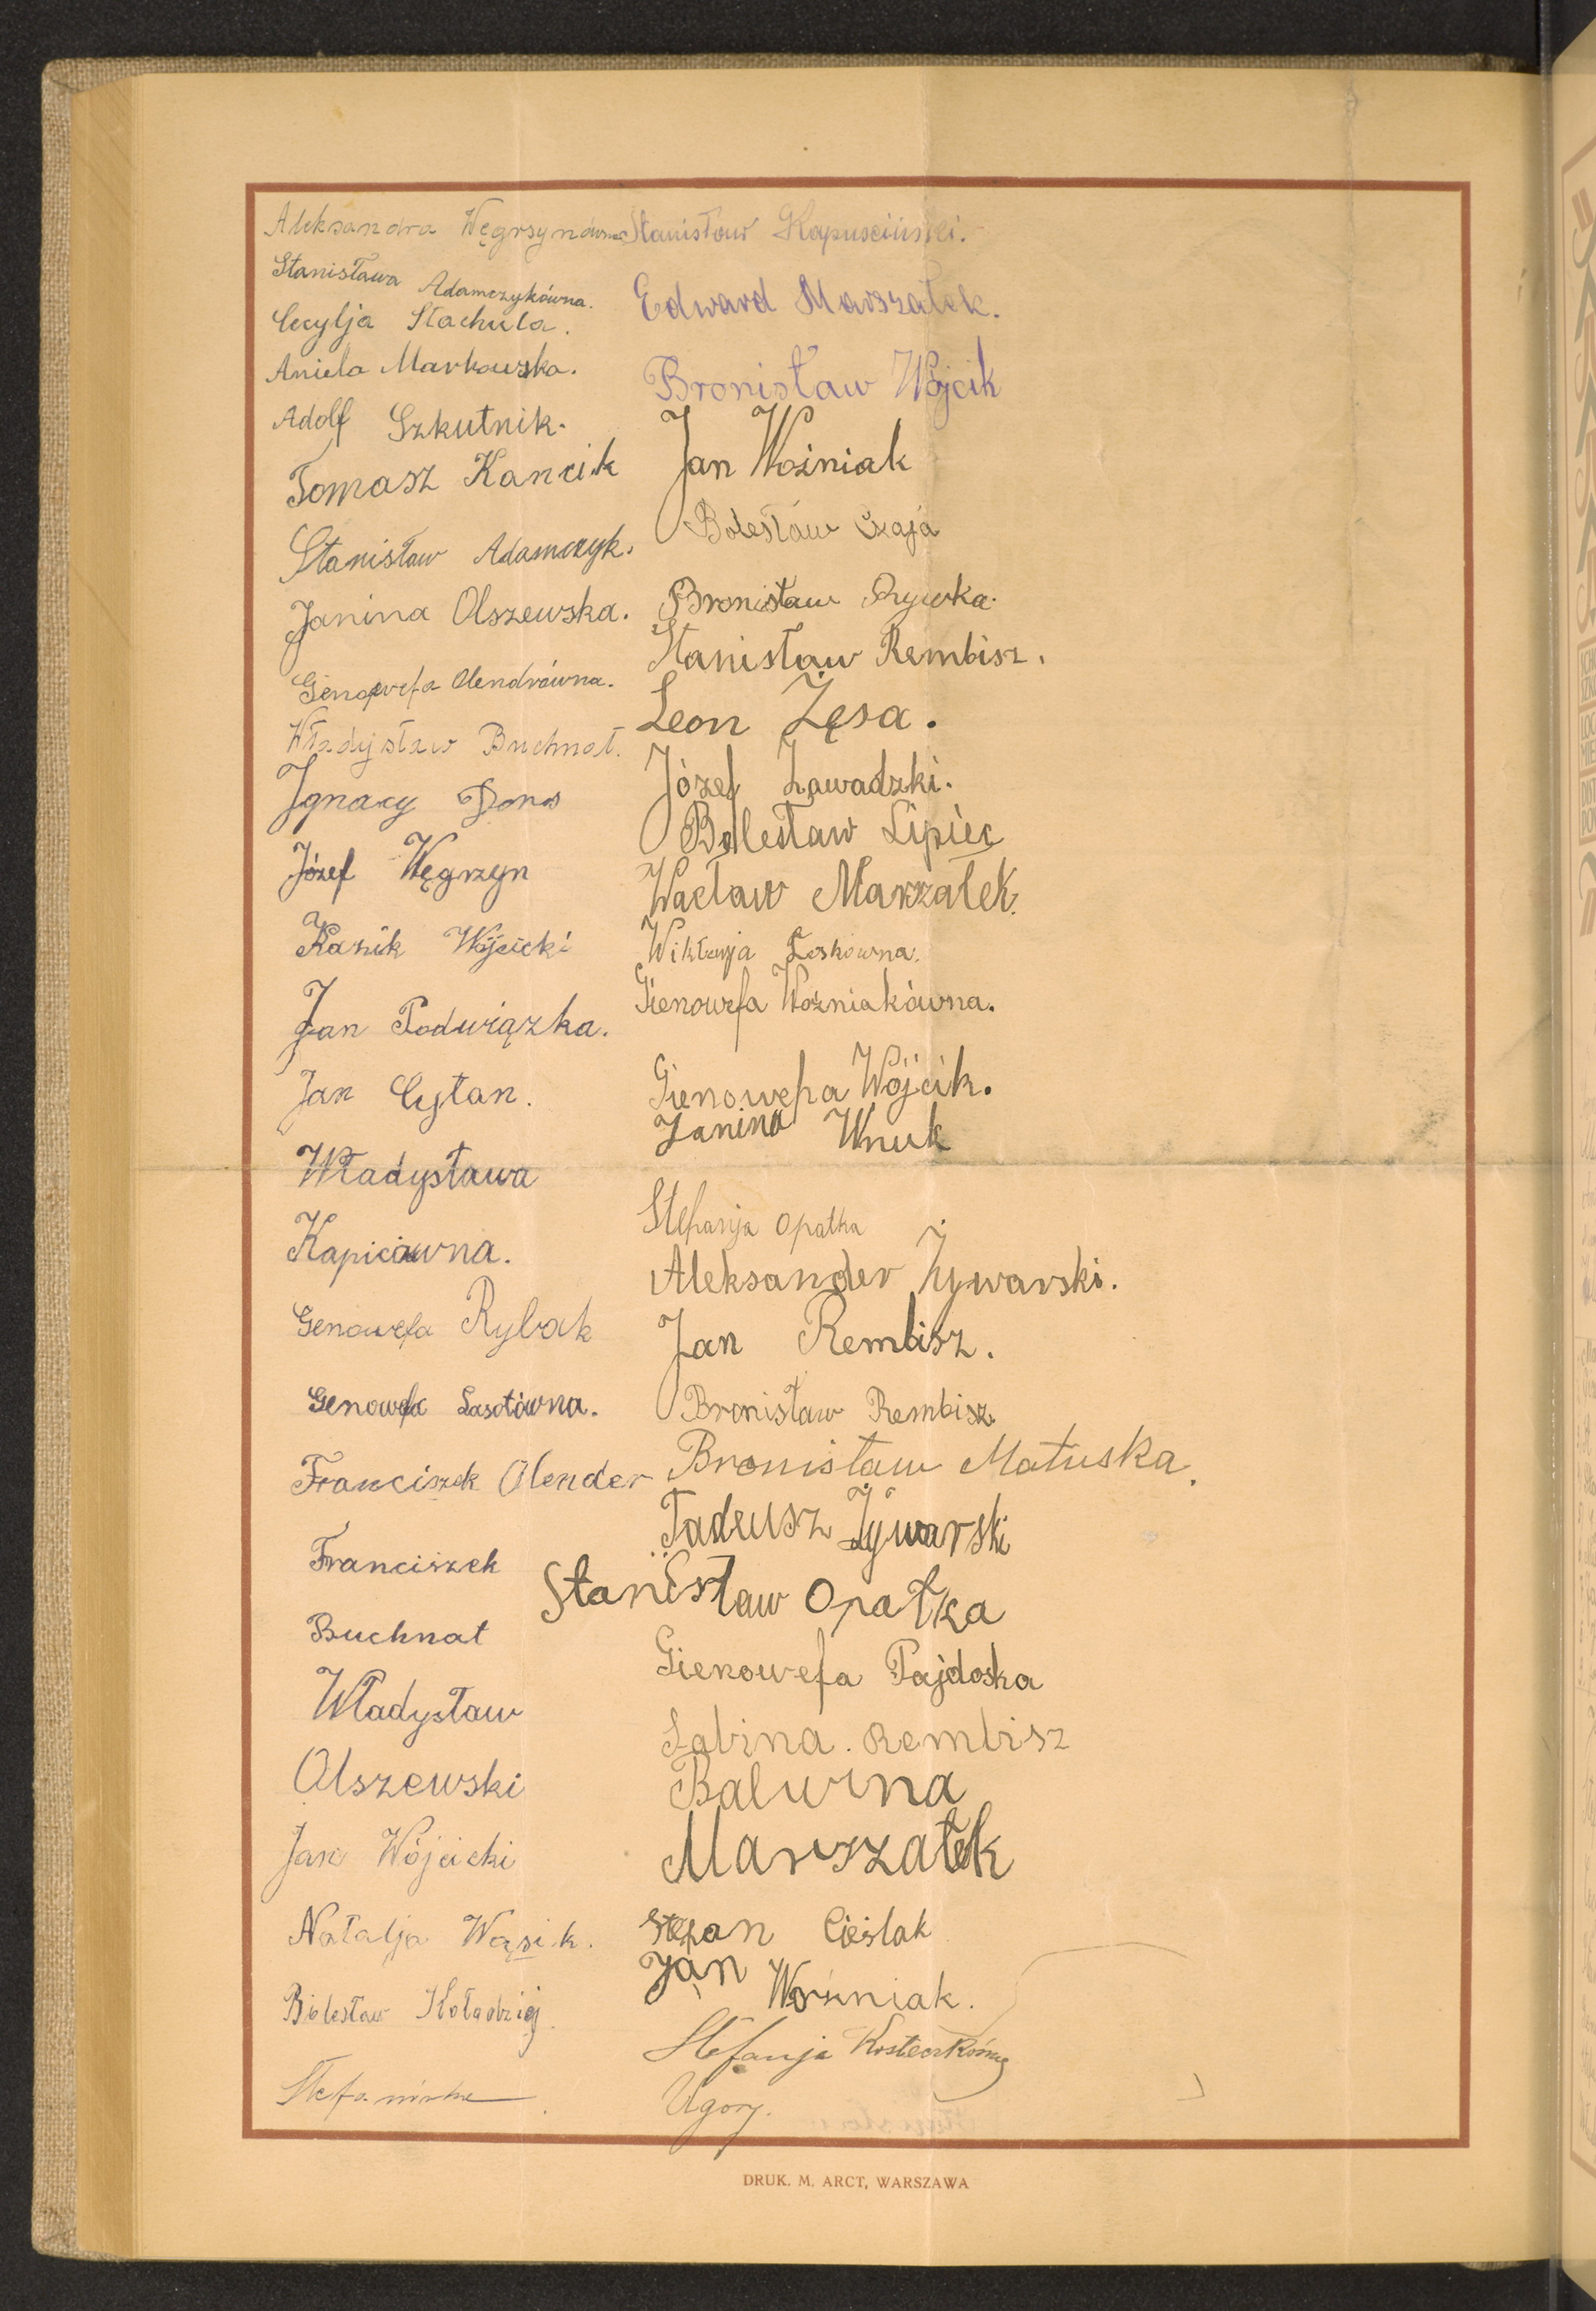 Aleksandra Węgrsynówna
Stanisława Adamczykówna.
Cecylja Stachula.
Aniela Markowska.
Adolf Szkutnik.
Tomasz Kancik
Stanisław Adamczyk.
Janina Olszewska.
Genowefa Olendrówna.
Władysław Buchnat.
Ignacy Donos
Józef Węgrzyn
Kazik Wójcicki
Jan Podwiązka.
Jan Cytan.
Władysława
Kapicówna.
Genowefa Rybak
Genowefa Lasotówna.
Franciszek Olender
Franciszek
Buchnat
Władysław
Olszewski
Jan Wójcicki
Natalja Wąsik.
Bolesław Kołodziej.
Stanisław Kapuscinski.
Edward Marszałek.
Bronisław Wójcik
Jan Woźniak
Bolesław Czaja
Bronisław
Stanisław Rembisz.
Leon Żęsa.
Józef Zawadzki.
Bolesław Lipiec
Wacław Marszałek.
Wiktorja
Gienowefa Woźniakówna.
Gienowefa Wójcik.
Janina Wnuk
Stefanja Opałka
Aleksander Żywarski.
Jan Rembisz.
Bronisław Rembisz
Bronisław Matuska.
Tadeusz Żywarski
Stanisław Opałka
Gienowefa Pajdoska
Sabina. Rembisz
Balwina
Marszałek
Stefan Cieślak
Jan Woźniak.
Stefanja Kosteczkówna
Ugory.
DRUK. M. ARCT, WARSZAWA